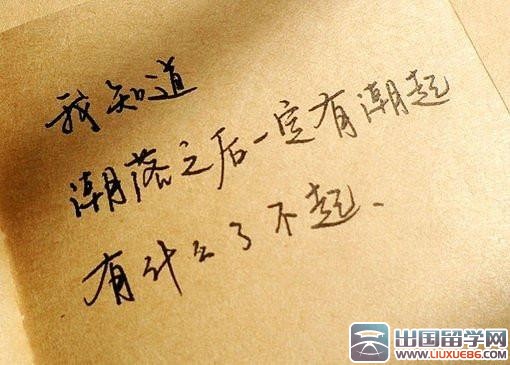 我知道
潮落之后一定有潮起
有什么了不起、
出国留学网
WWW.LIUXUE86.COM